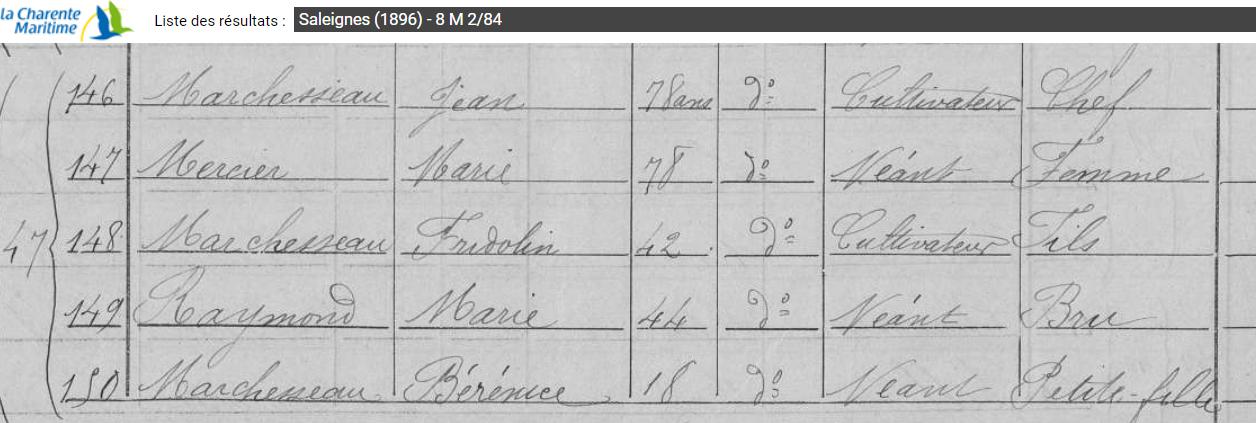 la Charente
Maritime
Liste des résultats : Saleignes (1896) - 8 M 2/84
146 Marchesseau Jean 78 ans do Cultivateur Chef
147 Mercier Marie 78 do Néant Femme
47 148 Marchesseau Fridolin 42 do Cultivateur Fils
149 Raymond Marie 44 do Néant Bru
150 Marchesseau Bérénice 18 do Néant Petite-fille